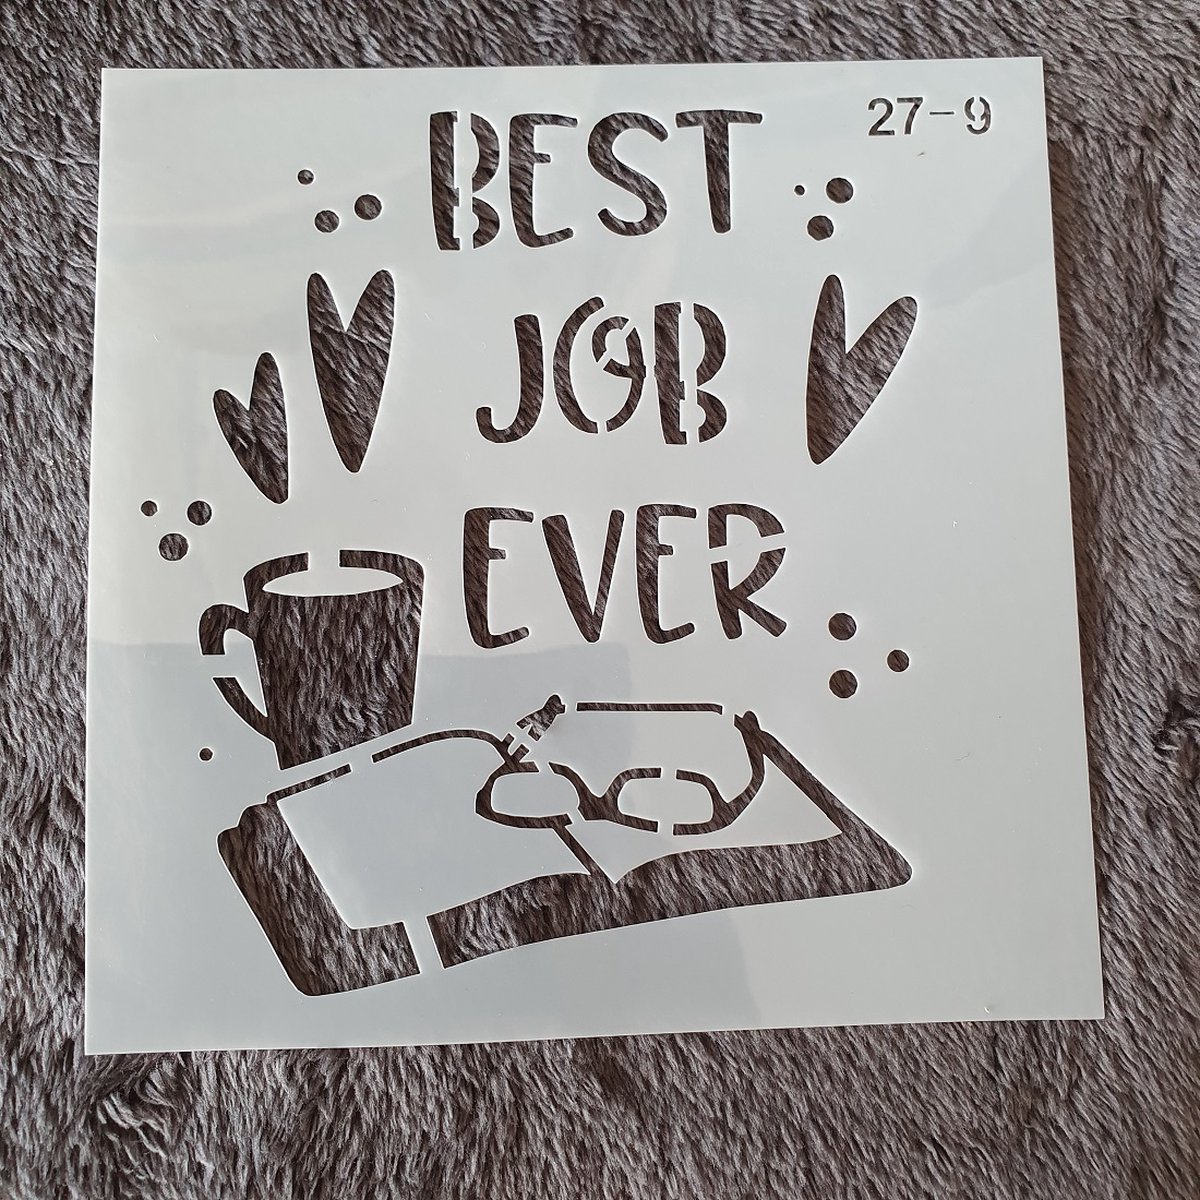 27-9
BEST
JOB
EVER